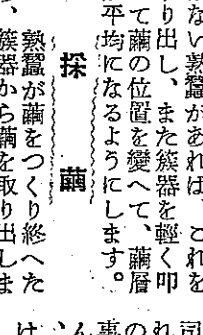 ない熟蠶があれば、これを
り出し、また簇器を輕く叩
て繭の位置を變へて、繭層
平均になるようにします。
採繭
熟蠶が繭をつくり終へた
簇器から繭を取り出しま